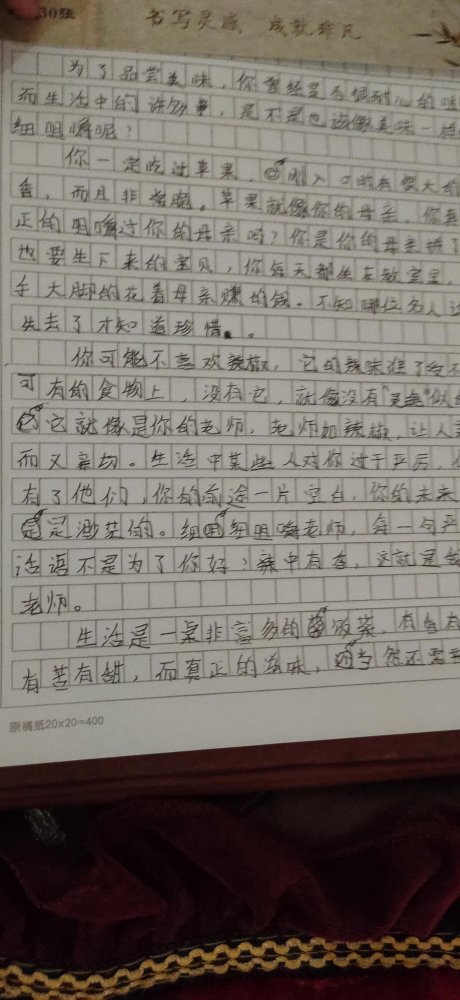 30张
书写灵感 成就非凡
为了品尝美味，你曾经是否很耐心的咀
而生活中的许多事，是不是也该像美味一样
细咀嚼呢？
你一定吃过苹果，刚入口时有很大的
香，而且非常脆。苹果就像你的母亲，你真
正的咀嚼过你的母亲吗？你是你的母亲拼了
也要生下来的宝贝，你每天都坐在教室里，
手大脚的花着母亲赚的钱。不知哪位名人
失去了才知道珍惜。
你可能不喜欢辣椒，它的辣味
可有的食物上，没有它，就像没有"灵魂"似
它就像是你的老师，老师如辣椒，让人
而又亲切。生活中某些人对你过于严厉，
有了他们，你的前途一片空白，你的未来
是渺茫的。细细咀嚼老师，每一句严
话语不是为了你好？辣中有香，这就是
老师。
生活是一桌非富多的饭菜，有
有苦有甜，而真正的滋味，当然还需
原稿纸20x20=400